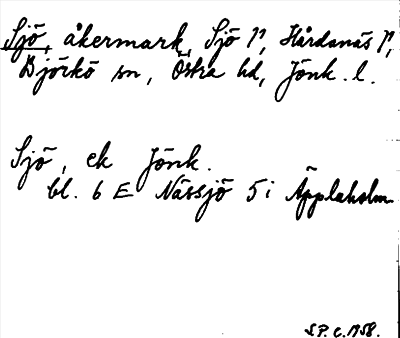 Sjö, åkermark, Sjö 1º, Hårdanäs 1º,
Björkö sn, Östra hd, Jönk. l.
Sjö, ek Jönk.
bl. 6 E Nässjö 5 i Äppleholm
S.P. c. 1958.